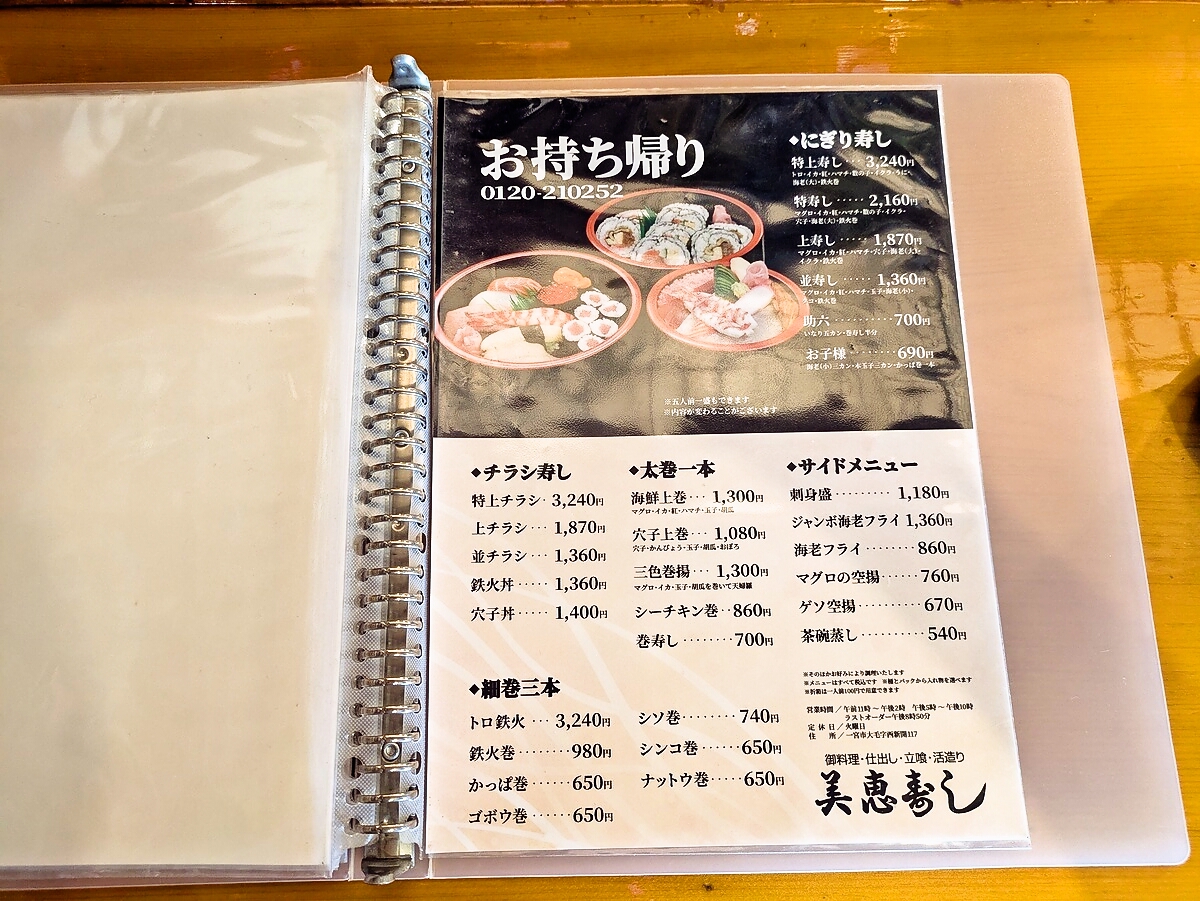 お持ち帰り
0120-210252
◆にぎり寿し
特上寿し‥‥3,240円
トロ・イカ・紅・ハマチ・数の子・イクラ・うに・
海老(大)・鉄火巻
特寿し‥‥‥2,160円
マグロ・イカ・紅・ハマチ・数の子・イクラ・
穴子・海老(大)・鉄火巻
上寿し‥‥‥1,870円
マグロ・イカ・紅・ハマチ・穴子・海老(大)・
イクラ・鉄火巻
並寿し‥‥‥1,360円
マグロ・イカ・紅・ハマチ・玉子・海老(小)・
鉄火巻
助六‥‥‥‥‥700円
いなり五カン・巻寿し半分
お子様‥‥‥‥690円
海老(小)三カン・本玉子三カン・かっぱ巻一本
※五人前一盛もできます
※内容が変わることがございます
◆チラシ寿し
特上チラシ‥3,240円
上チラシ‥‥1,870円
並チラシ‥‥1,360円
鉄火丼‥‥‥1,360円
穴子丼‥‥‥1,400円
◆太巻一本
海鮮上巻‥‥1,300円
マグロ・イカ・紅・ハマチ・玉子・胡瓜
穴子上巻‥‥1,080円
穴子・かんぴょう・玉子・胡瓜・おぼろ
三色巻揚‥‥1,300円
マグロ・イカ・玉子・胡瓜を巻いて天婦羅
シーチキン巻‥860円
巻寿し‥‥‥‥700円
◆サイドメニュー
刺身盛‥‥‥‥‥1,180円
ジャンボ海老フライ 1,360円
海老フライ‥‥‥‥860円
マグロの空揚‥‥‥760円
ゲソ空揚‥‥‥‥‥670円
茶碗蒸し‥‥‥‥‥540円
◆細巻三本
トロ鉄火‥‥3,240円
鉄火巻‥‥‥‥980円
かっぱ巻‥‥‥650円
ゴボウ巻‥‥‥650円
シソ巻‥‥‥‥740円
シンコ巻‥‥‥650円
ナットウ巻‥‥650円
※そのほかお好みにより調理いたします
※メニューはすべて税込です ※桶とパックから入れ物を選べます
※折箱は一人前100円で用意できます
営業時間／午前11時～午後2時 午後5時～午後10時
ラストオーダー午後8時50分
定休日／火曜日
住所／一宮市大毛字西新開117
御料理・仕出し・立喰・活造り
美恵寿し